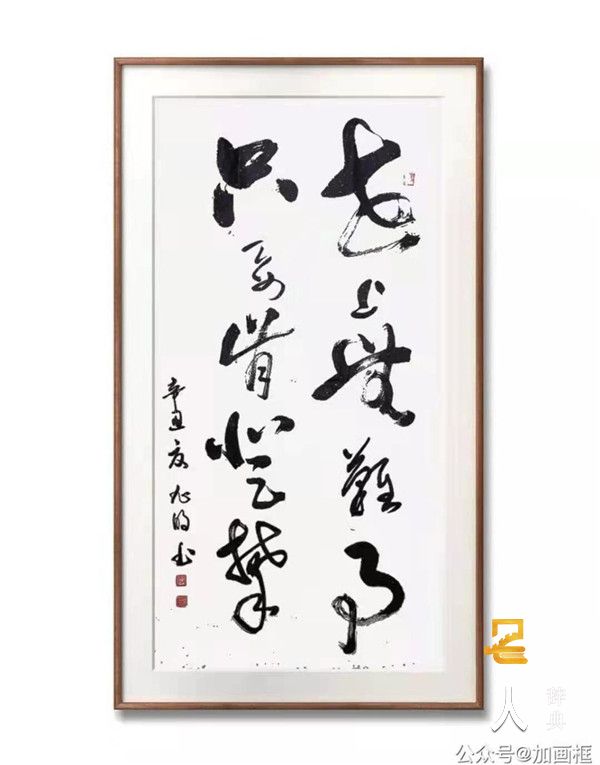 世上無難事
只要肯登攀
辛丑夏 书
人
辞典
公众号@加画框